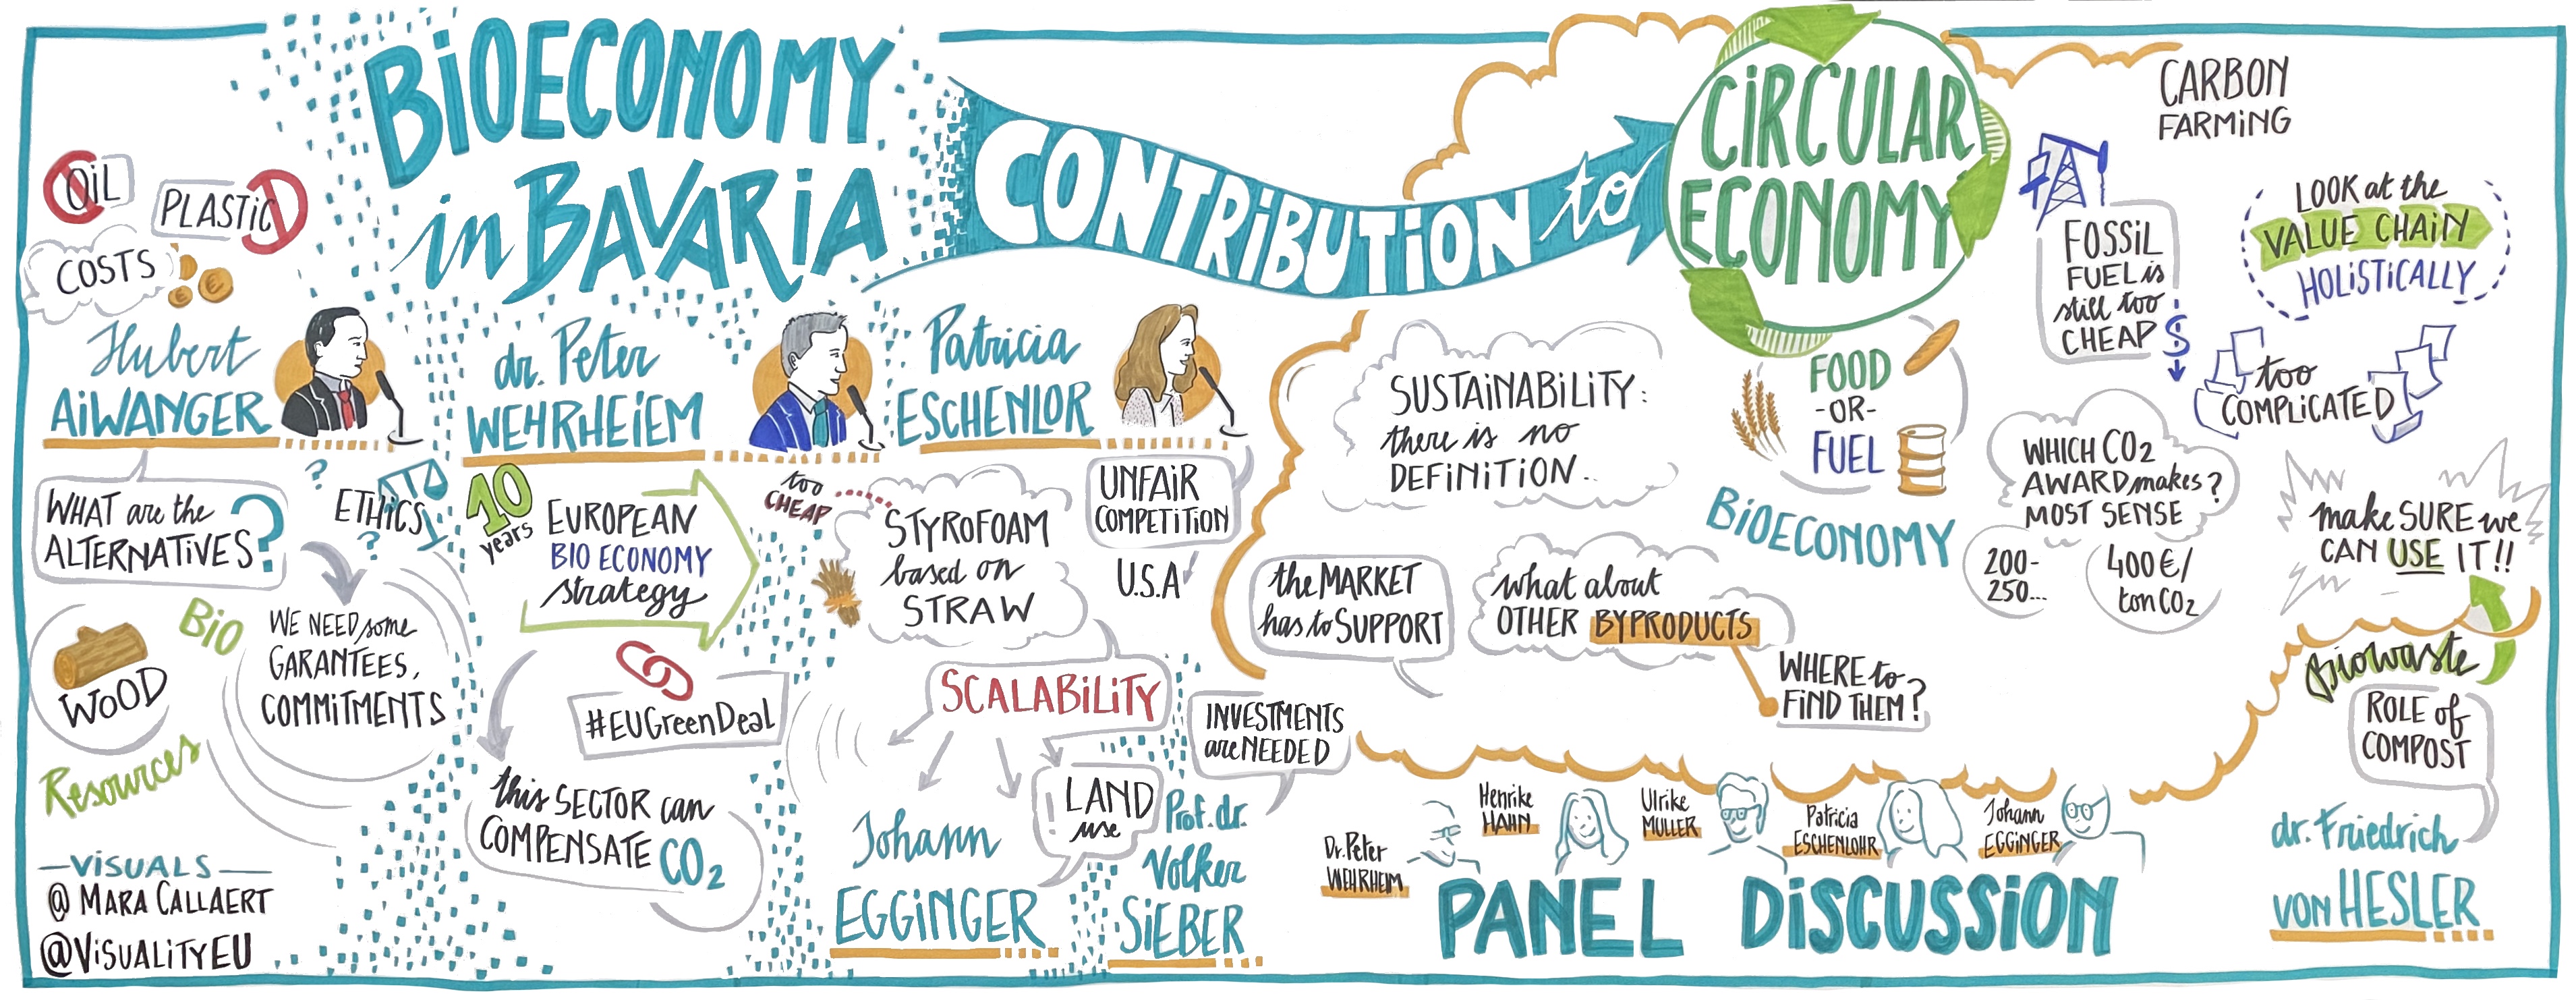 BIOECONOMY
in BAVARIA
CONTRIBUTION to
CIRCULAR
ECONOMY
OIL
PLASTIC
COSTS
Hubert
AIWANGER
WHAT are the
ALTERNATIVES?
ETHICS
WOOD
BIO
Resources
WE NEED some
GARANTEES,
COMMITMENTS
VISUALS
@ MARA CALLAERT
@VISUALITYEU
dr. Peter
WEHRHEIEM
10
years
EUROPEAN
BIO ECONOMY
strategy
#EUGreenDeal
this SECTOR can
COMPENSATE CO2
Patricia
ESCHENLOR
too
CHEAP
STYROFOAM
based on
STRAW
UNFAIR
COMPETITION
U.S.A
SCALABILITY
LAND
use
Johann
EGGINGER
INVESTMENTS
are NEEDED
Prof. dr.
Volker
SIEBER
SUSTAINABILITY:
there is no
DEFINITION..
the MARKET
has to SUPPORT
what about
OTHER BYPRODUCTS
WHERE to
FIND THEM?
FOOD
-OR-
FUEL
BIOECONOMY
CARBON
FARMING
FOSSIL
FUEL is
still too
CHEAP
$
LOOK at the
VALUE CHAIN
HOLISTICALLY
too
COMPLICATED
WHICH CO2
AWARD makes?
MOST SENSE
200-
250...
400€/
ton CO2
make SURE we
CAN USE IT!!
Biowaste
ROLE of
COMPOST
dr. Friedrich
VON HESLER
Dr. Peter
WEHRHEIM
Henrike
HAHN
Ulrike
MULLER
Patricia
ESCHENLOHR
Johann
EGGINGER
PANEL DISCUSSION